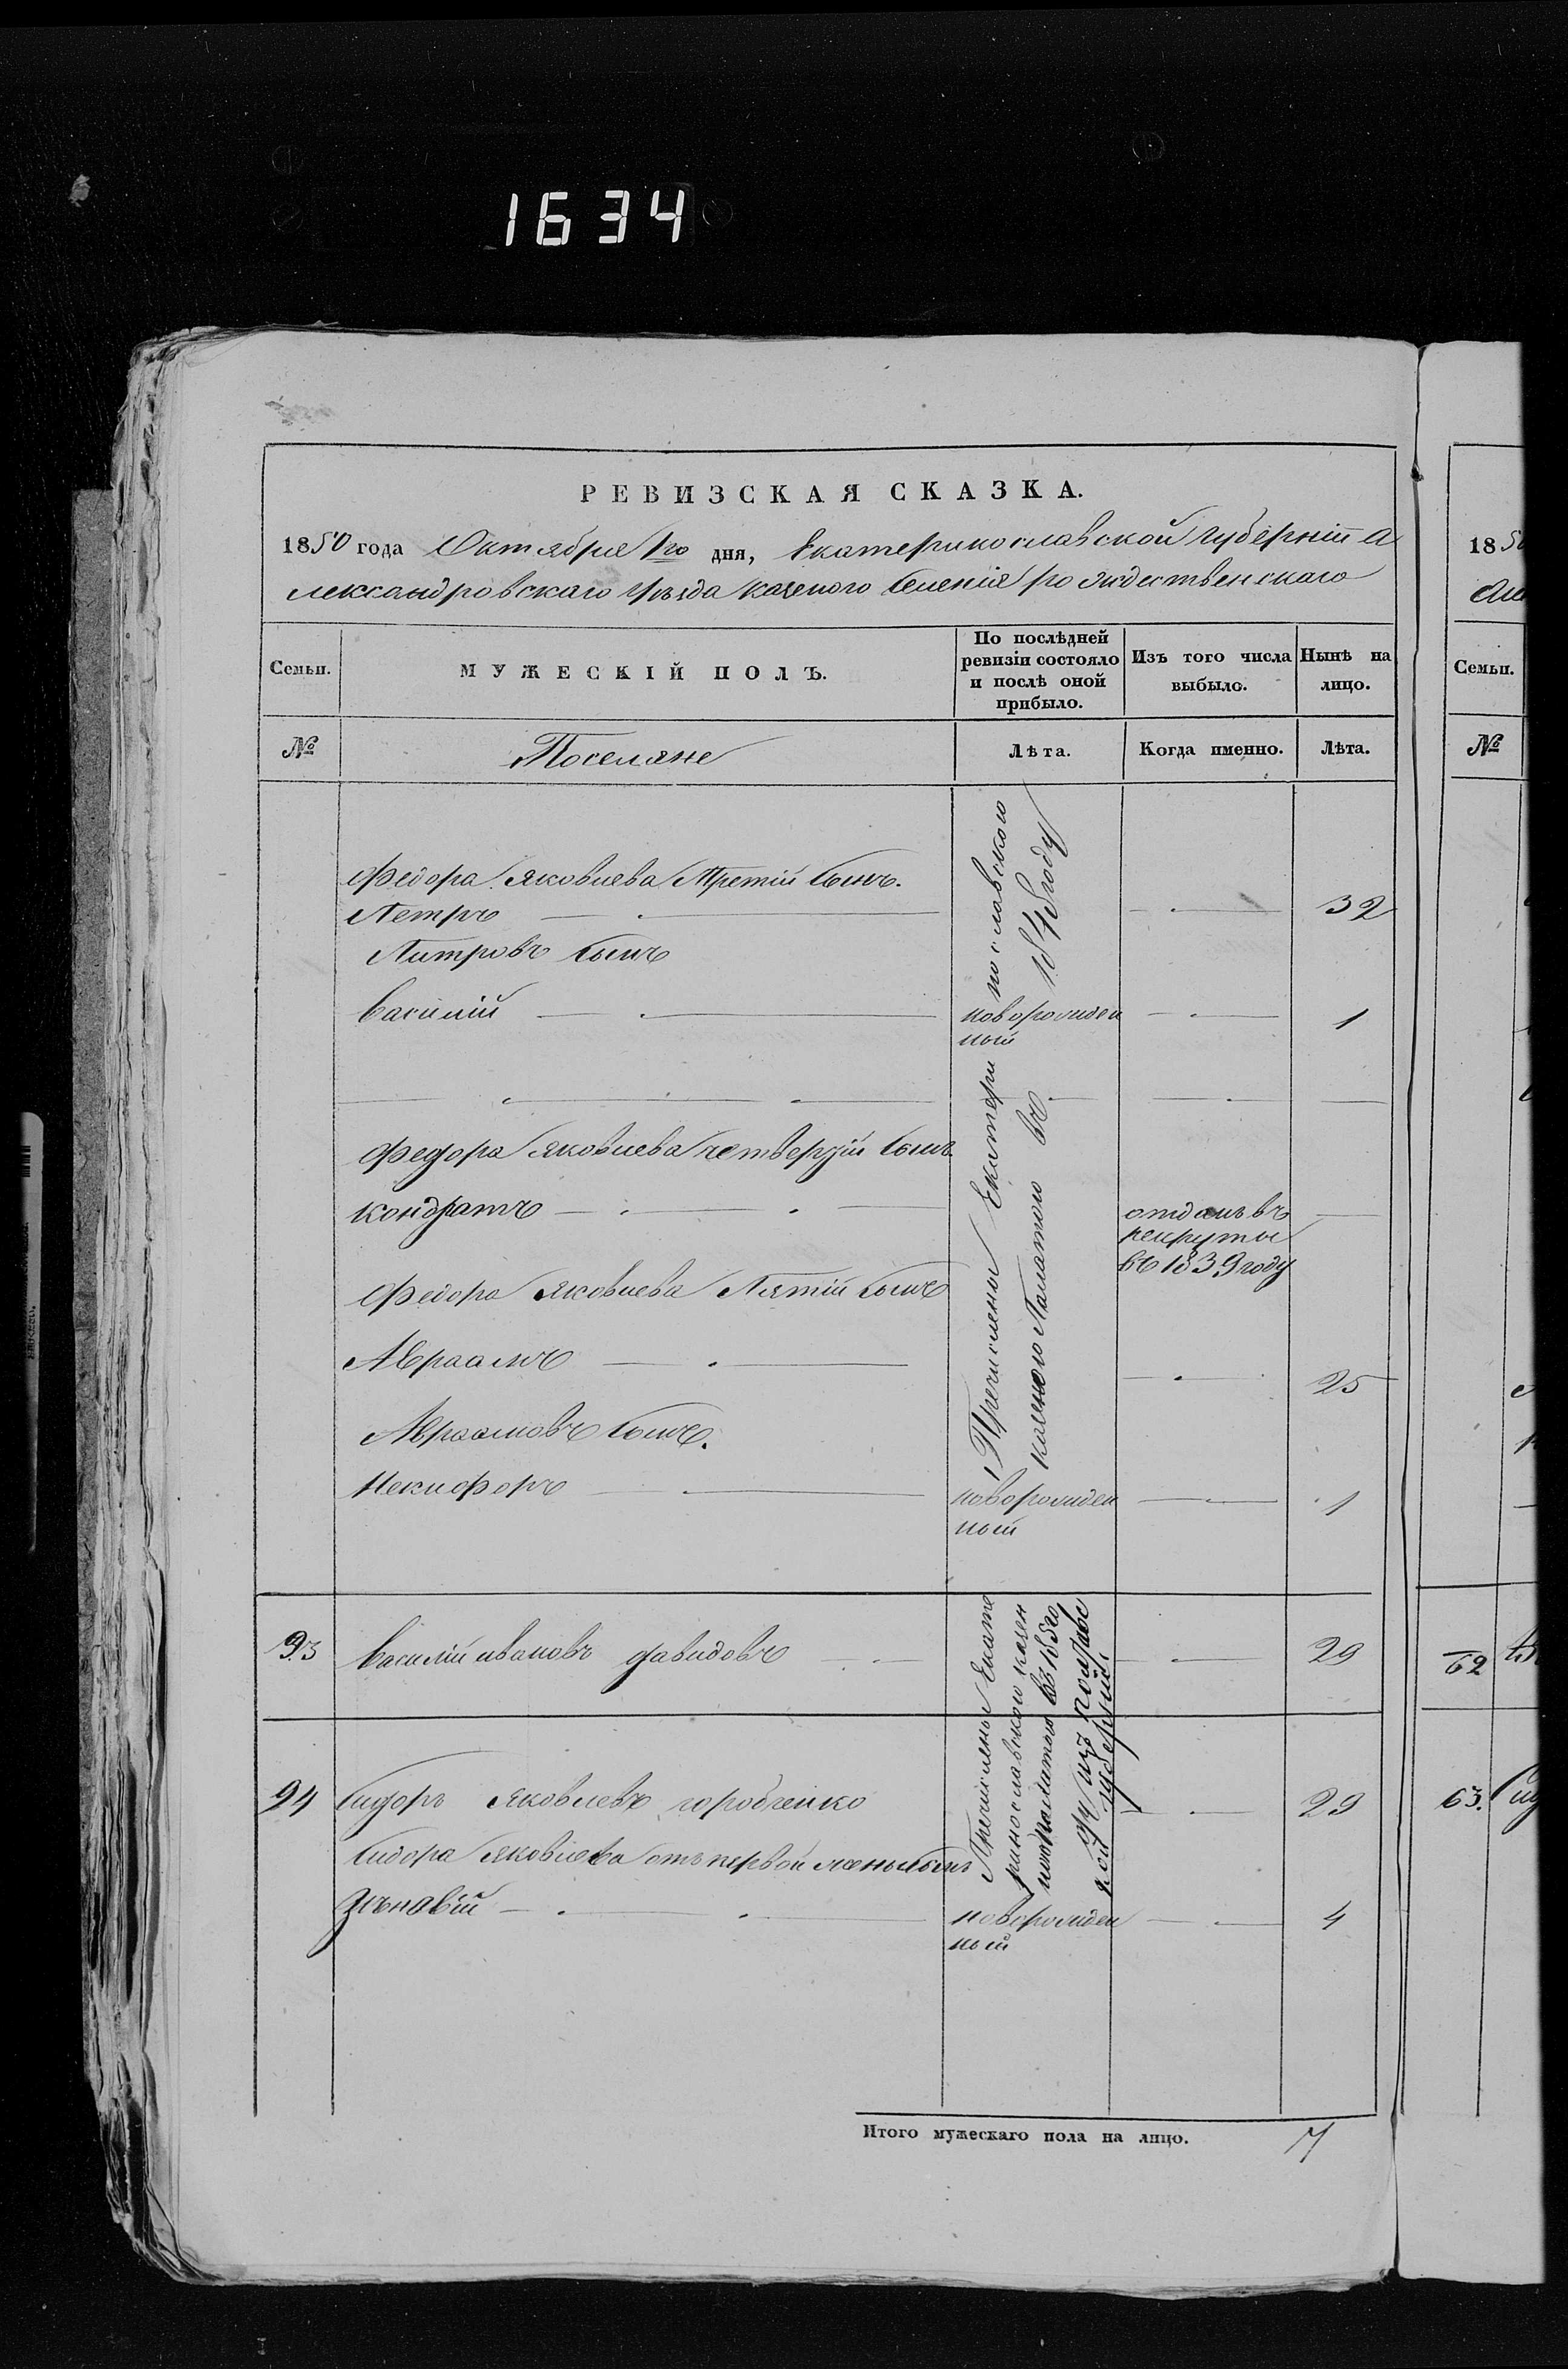 1634
РЕВИЗСКАЯ СКАЗКА.
1850 года Октября 1го дня, Екатеринославской губерніи А
лександровскаго уѣзда казеного селенія рождественскаго
Семьи.
МУЖЕСКІЙ ПОЛЪ.
По послѣдней ревизіи состояло и послѣ оной прибыло.
Изъ того числа выбыло.
Нынѣ на лицо.
№
Поселяне
Лѣта.
Когда именно.
Лѣта.
Федора Яковлева Третій сынъ.
Петръ 32
Питровъ сынъ
Василій новорожден
ный 1
Федора Яковлева четвертій сынъ
Кондратъ отданъ въ
рекруты
въ 1839 году
Федора Яковлева Пятій сынъ
Авраамъ 25
Авраамовъ сынъ.
Некифоръ новорожден
ный 1
Пречислены Екатери нославского
казеного Палатою въ году
93 Василій ивановъ давидовъ 29
94 Сидоръ Яковлевъ горобченко 29
Сидора Яковлева отъ первой жены сынъ
Зѣновій новорожден
ный 4
Пречислены Екате
ринославского казен
ною Палатою въ
году изъ
кой губерніи
Итого мужескаго пола на лицо. 7
1850
Але
Семьи.
№
62
63. Сид